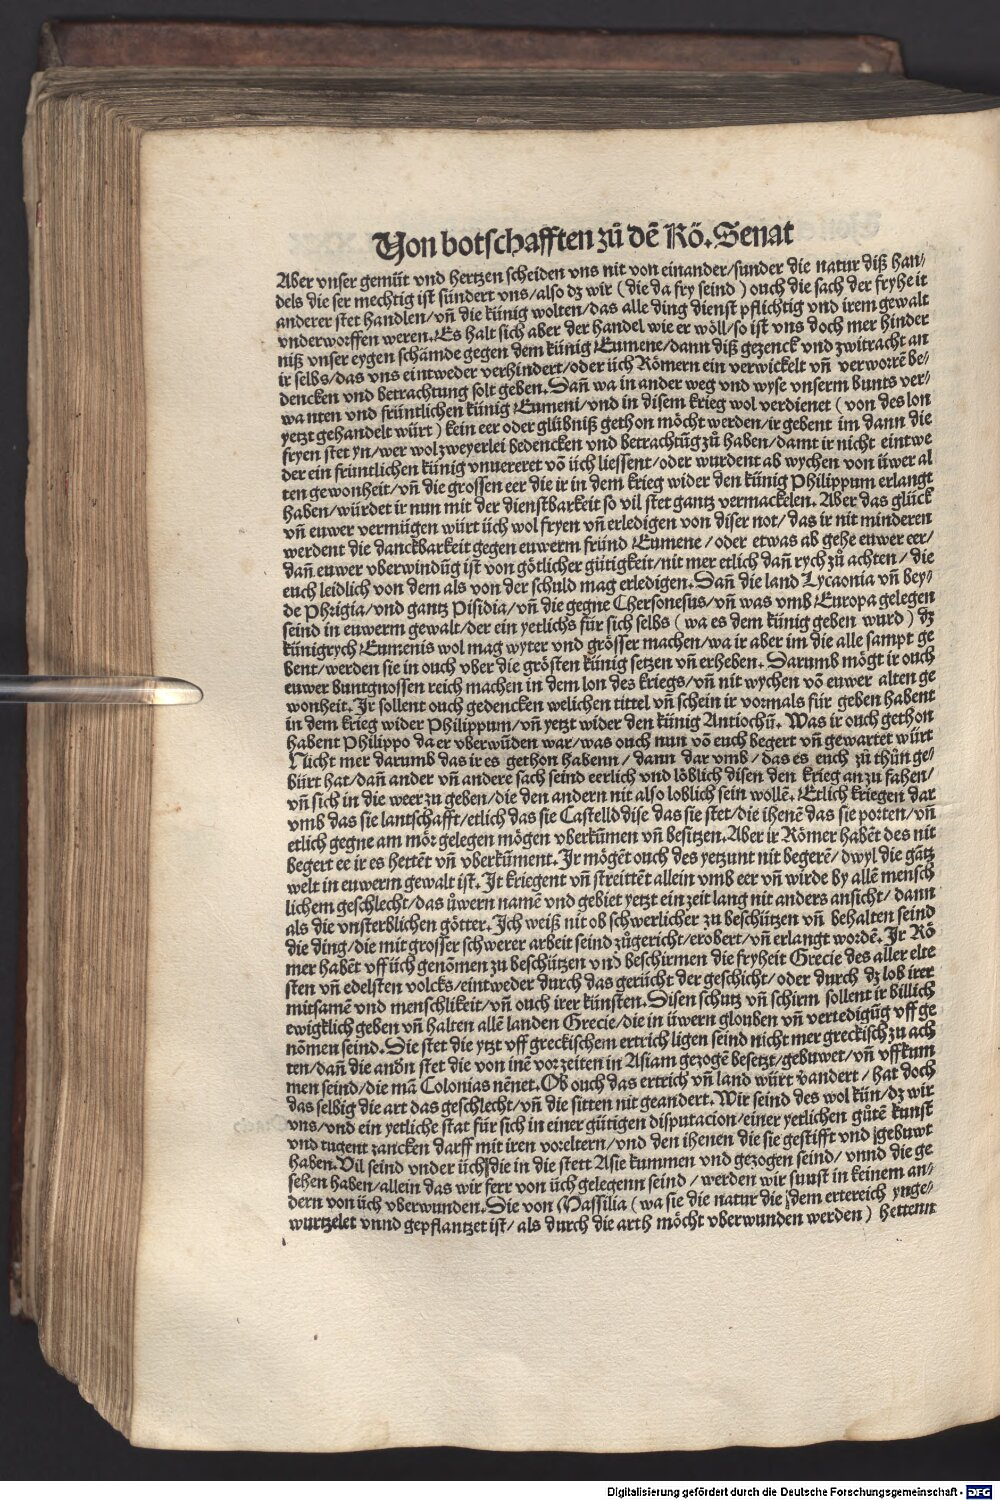 Von botschafften zů dē Rö. Senat
Aber vnser gemüt vnd hertzen scheiden vns nit von einander/sunder die natur diß han/
dels die ser mechtig ist sündert vns/also dz wir (die da fry seind) ouch die sach der fryhe it
anderer stet handlen/vñ die künig wolten/das alle ding dienst pflichtig vnd irem gewalt
vnderworffen weren. Es halt sich aber der handel wie er wöll/so ist vns doch mer hinder
niß vnser eygen schämde gegen dem künig Eumene/dann diß gezenck vnd zwitracht an
ir selbs/das vns eintweder verhindert/oder üch Römern ein verwickelt vñ verworrē be/
dencken vnd betrachtung solt geben. Dañ wa in ander weg vnd wyse vnserm bunts ver/
wa nten vnd früntlichen künig Eumeni/vnd in disem krieg wol verdienet (von des lon
yetzt gehandelt würt) kein eer oder glübniß gethon möcht werden/ir gebent im dann die
fryen stet yn/wer wol zweyerlei bedencken vnd betrachtūg zů haben/damt ir nicht eintwe
der ein früntlichen künig vnuereret vō üch liessent/oder wurdent ab wychen von üwer al
ten gewonheit/vñ die grossen eer die ir in dem krieg wider den künig Philippum erlangt
haben/würdet ir nun mit der dienstbarkeit so vil stet gantz vermackelen. Aber das glück
vñ euwer vermügen würt üch wol fryen vñ erledigen von diser not/das ir nit minderen
werdent die danckbarkeit gegen euwerm fründ Eumene/oder etwas ab gehe euwer eer/
dañ euwer vberwindūg ist von götlicher gütigkeit/nit mer etlich dañ rych zů achten/die
euch leidlich von dem als von der schuld mag erledigen. Dañ die land Lycaonia vñ bey/
de Phrigia/vnd gantz Pisidia/vñ die gegne Chersonesus/vñ was vmb Europa gelegen
seind in euwerm gewalt/der ein yetlichs für sich selbs (wa es dem künig geben wurd) dz
künigrych Eumenis wol mag wyter vnd grösser machen/wa ir aber im die alle sampt ge
bent/werden sie in ouch vber die grösten künig setzen vñ erheben. Darumb mögt ir ouch
euwer buntgnossen reich machen in dem lon des kriegs/vñ nit wychen vō euwer alten ge
wonheit. Ir sollent ouch gedencken welichen tittel vñ schein ir vormals für geben habent
in dem krieg wider Philippum/vñ yetzt wider den künig Antiochū. Was ir ouch gethon
habent Philippo da er vberwūden war/was ouch nun vō euch begert vñ gewartet würt
Nücht mer darumb das ir es gethon habenn/dann dar vmb/das es euch zů thůn ge/
bürt hat/dañ ander vñ andere sach seind eerlich vnd löblich disen den krieg an zu fahen/
vñ sich in die weer zu geben/die den andern nit also loblich sein wollē. Etlich kriegen dar
vmb das sie lantschafft/etlich das sie Castell dise das sie stet/die ihenē das sie porten/vñ
etlich gegne am mör gelegen mögen vberkūmen vñ besitzen. Aber ir Römer habēt des nit
begert ee ir es hettēt vñ vberkūment. Ir mögēt ouch des yetzunt nit begerē/dwyl die gātz
welt in euwerm gewalt ist. It kriegent vñ streittēt allein vmb eer vñ wirde by allē mensch
lichem geschlecht/das ůwern namē vnd gebiet yetzt ein zeit lang nit anders ansicht/dann
als die vnsterblichen götter. Ich weiß nit ob schwerlicher zu beschützen vñ behalten seind
die ding/die mit grosser schwerer arbeit seind zůgericht/erobert/vñ erlangt wordē. Ir Rö
mer habēt vff üch genōmen zu beschützen vnd beschirmen die fryheit Grecie des aller elte
sten vñ edelsten volcks/eintweder durch das gerücht der geschicht/oder durch dz lob irer
mitsamē vnd menschlikeit/vñ ouch irer künsten. Disen schutz vñ schirm sollent ir billich
ewigklich geben vñ halten allē landen Grecie/die in üwern glouben vñ vertedigūg vff ge
nōmen seind. Die stet die ytzt vff greckischem ertrich ligen seind nicht mer greckisch zu ach
ten/dañ die andn stet die von inē vor zeiten in Asiam gezogē besetzt/gebuwet/vñ vffkum
men seind/die mā Colonias nēnet. Ob ouch das ertrich vñ land würt v̄andert/hat doch
das selbig die art das geschlecht/vñ die sitten nit geandert. Wir seind des wol kün/dz wir
vns/vnd ein yetliche stat für sich in einer gütigen disputacion/einer yetlichen gůtē kunst
vnd tugent zancken darff mit iren vozeltern/vnd den ihenen die sie gestifft vnd gebuwt
haben. Vil seind vnder üch die in die stett Asie kummen vnd gezogen seind/vnnd die ge
sehen haben/allein das wir ferr von üch gelegenn seind/werden wir sunst in keinem an/
dern von üch vberwunden. Die von Massilia (wa sie die natur die dem ertereich ynge/
wurtzelet vnnd gepflantzet ist/als durch die arth möcht vberwunden werden) hettenn
Digitalisierung gefördert durch die Deutsche Forschungsgemeinschaft - DFG